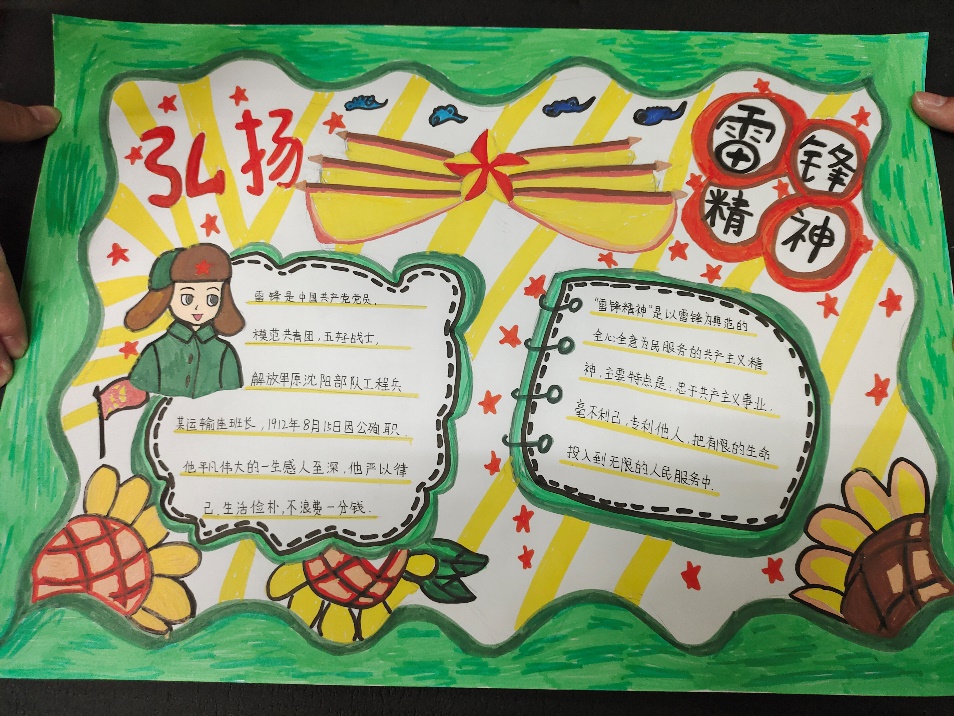 弘扬
雷锋
精神
雷锋是中国共产党党员,
模范共青团,五好战士,
解放军原沈阳部队工程兵
某运输连班长,1912年8月15日因公殉职.
他平凡伟大的一生感人至深,他严以律
己,生活俭朴,不浪费一分钱.
"雷锋精神"是以雷锋为典范的
全心全意为民服务的共产主义精
神,主要特点是:忠于共产主义事业.
毫不利己,专利他人,把有限的生命
投入到无限的人民服务中.